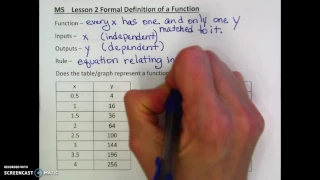 M5 Lesson 2 Formal Definition of a Function
Function – every x has one and only one y
matched to it.
Inputs – x (independent)
Outputs – y (dependent)
Rule – equation relating in
Does the table/graph represent a function
x y
0.5 4
1 16
1.5 36
2 64
2.5 100
3 144
3.5 196
4 256
RECORDED WITH
SCREENCAST MATIC